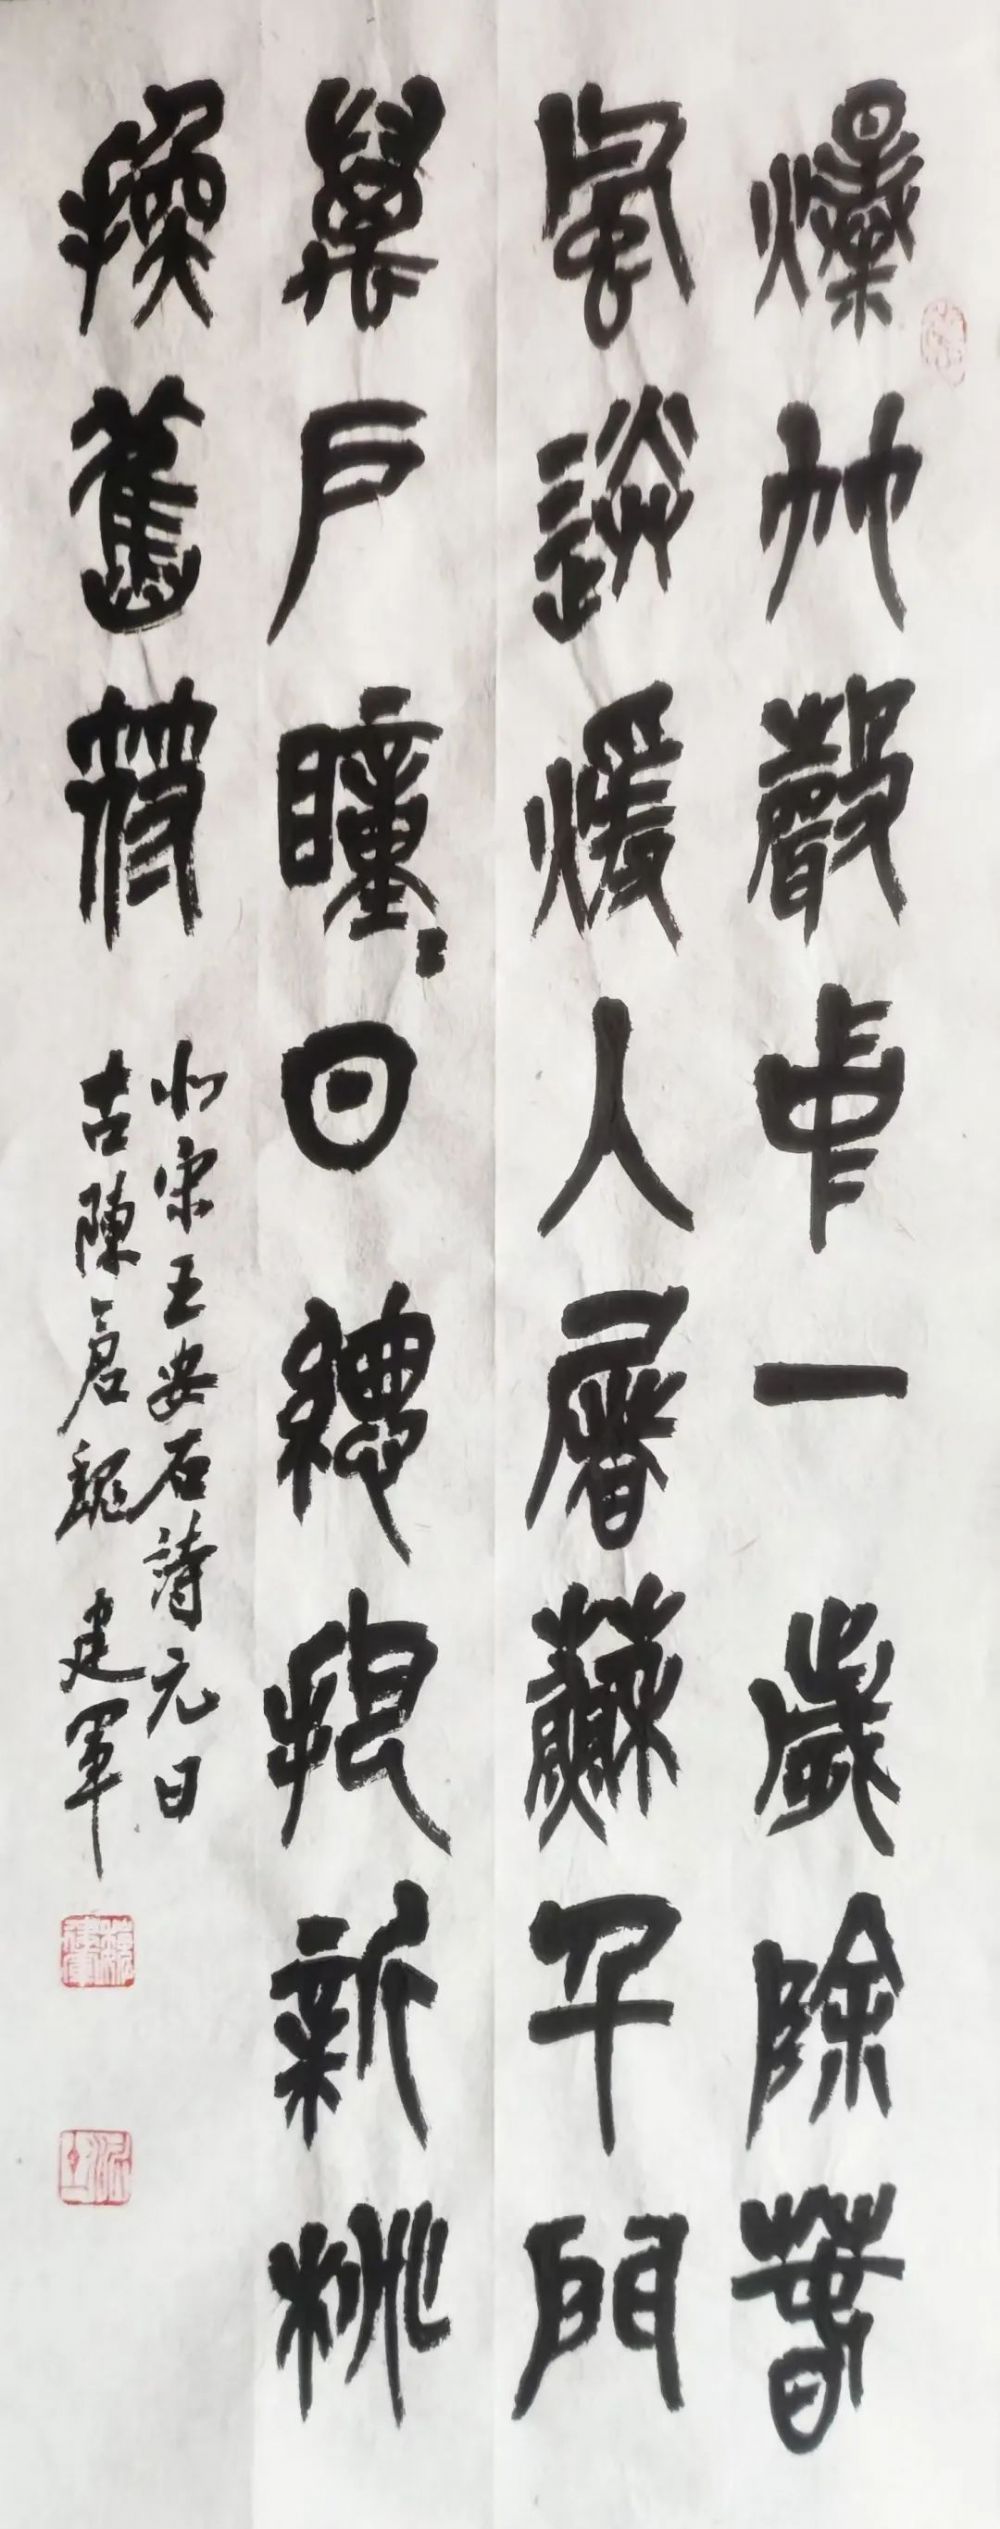 爆竹聲中一歲除春
風送煖入屠蘇千門
萬戶瞳〻日總把新桃
換舊符
北宋王安石詩元日
古陳倉魏建軍